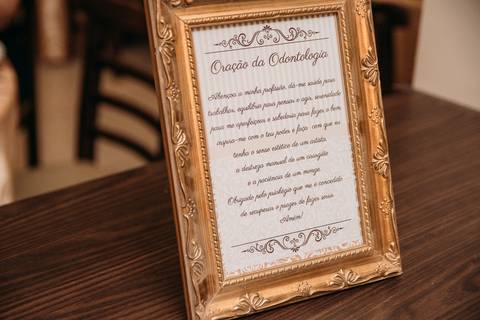 Oração da Odontologia
Abençoa a minha profissão, dá-me saúde para
trabalhar, equilíbrio para pensar e agir, serenidade
para me aperfeiçoar e sabedoria para fazer o bem
inspira-me com o teu poder e faça com que eu
tenha o senso estético de um artista,
a destreza manual de um cirurgião
e a paciência de um monge.
Obrigado pelo privilégio que me é concedido
de recuperar o prazer de fazer sorrir.
Amém!